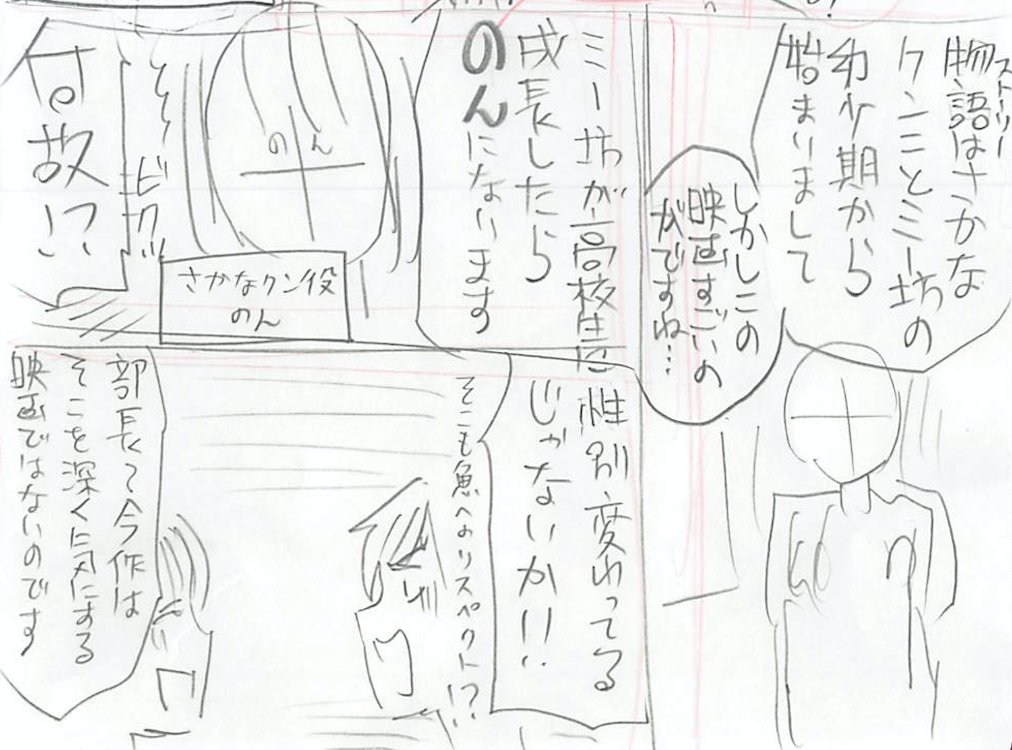 物語はさかな
ストーリー
クンことミー坊の
幼少期から
始まりまして
しかしこの
映画すごいの
がですね…
ミー坊が高校生に
成長したら
のんになります
のん
さかなクン役
のん
ビクッ
何故!?
性別変わってる
じゃないか!!
そこも魚へのリスペクト!?
部長〜今作は
そこを深く気にする
映画ではないのです